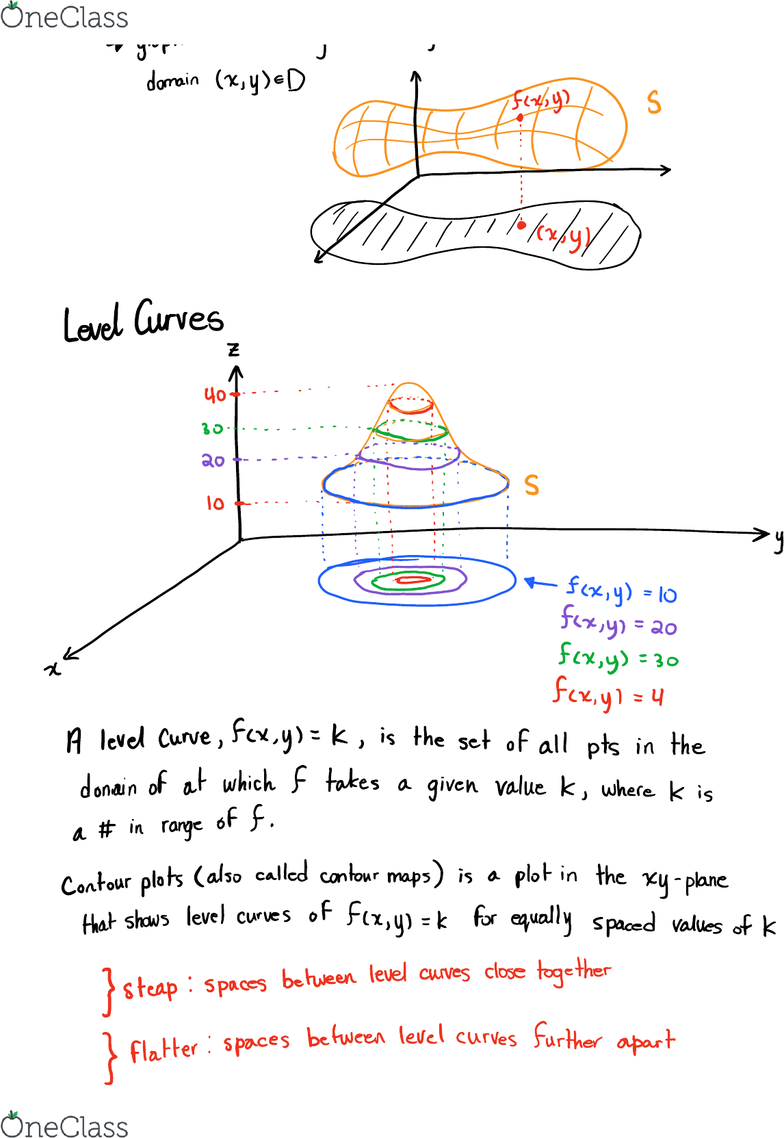 OneClass
domain (x,y)∈D
f(x,y)
S
(x,y)
Level Curves
z
40
30
20
10
S
y
x
f(x,y) = 10
f(x,y) = 20
f(x,y) = 30
f(x,y) = 4
A level curve, f(x,y) = k, is the set of all pts in the
domain of at which f takes a given value k, where k is
a # in range of f.
Contour plots (also called contour maps) is a plot in the xy-plane
that shows level curves of f(x,y) = k for equally spaced values of k
} steap : spaces between level curves close together
} flatter : spaces between level curves further apart
OneClass